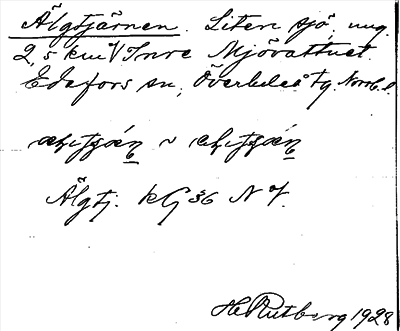 Älgtjärnen. Liten sjö, ung.
2,5 km V Inre Mjövattnet.
Edefors sn, Överluleå tg, Norrb. l.
Älgtj. kG 36 NV.
H Rutberg 1928